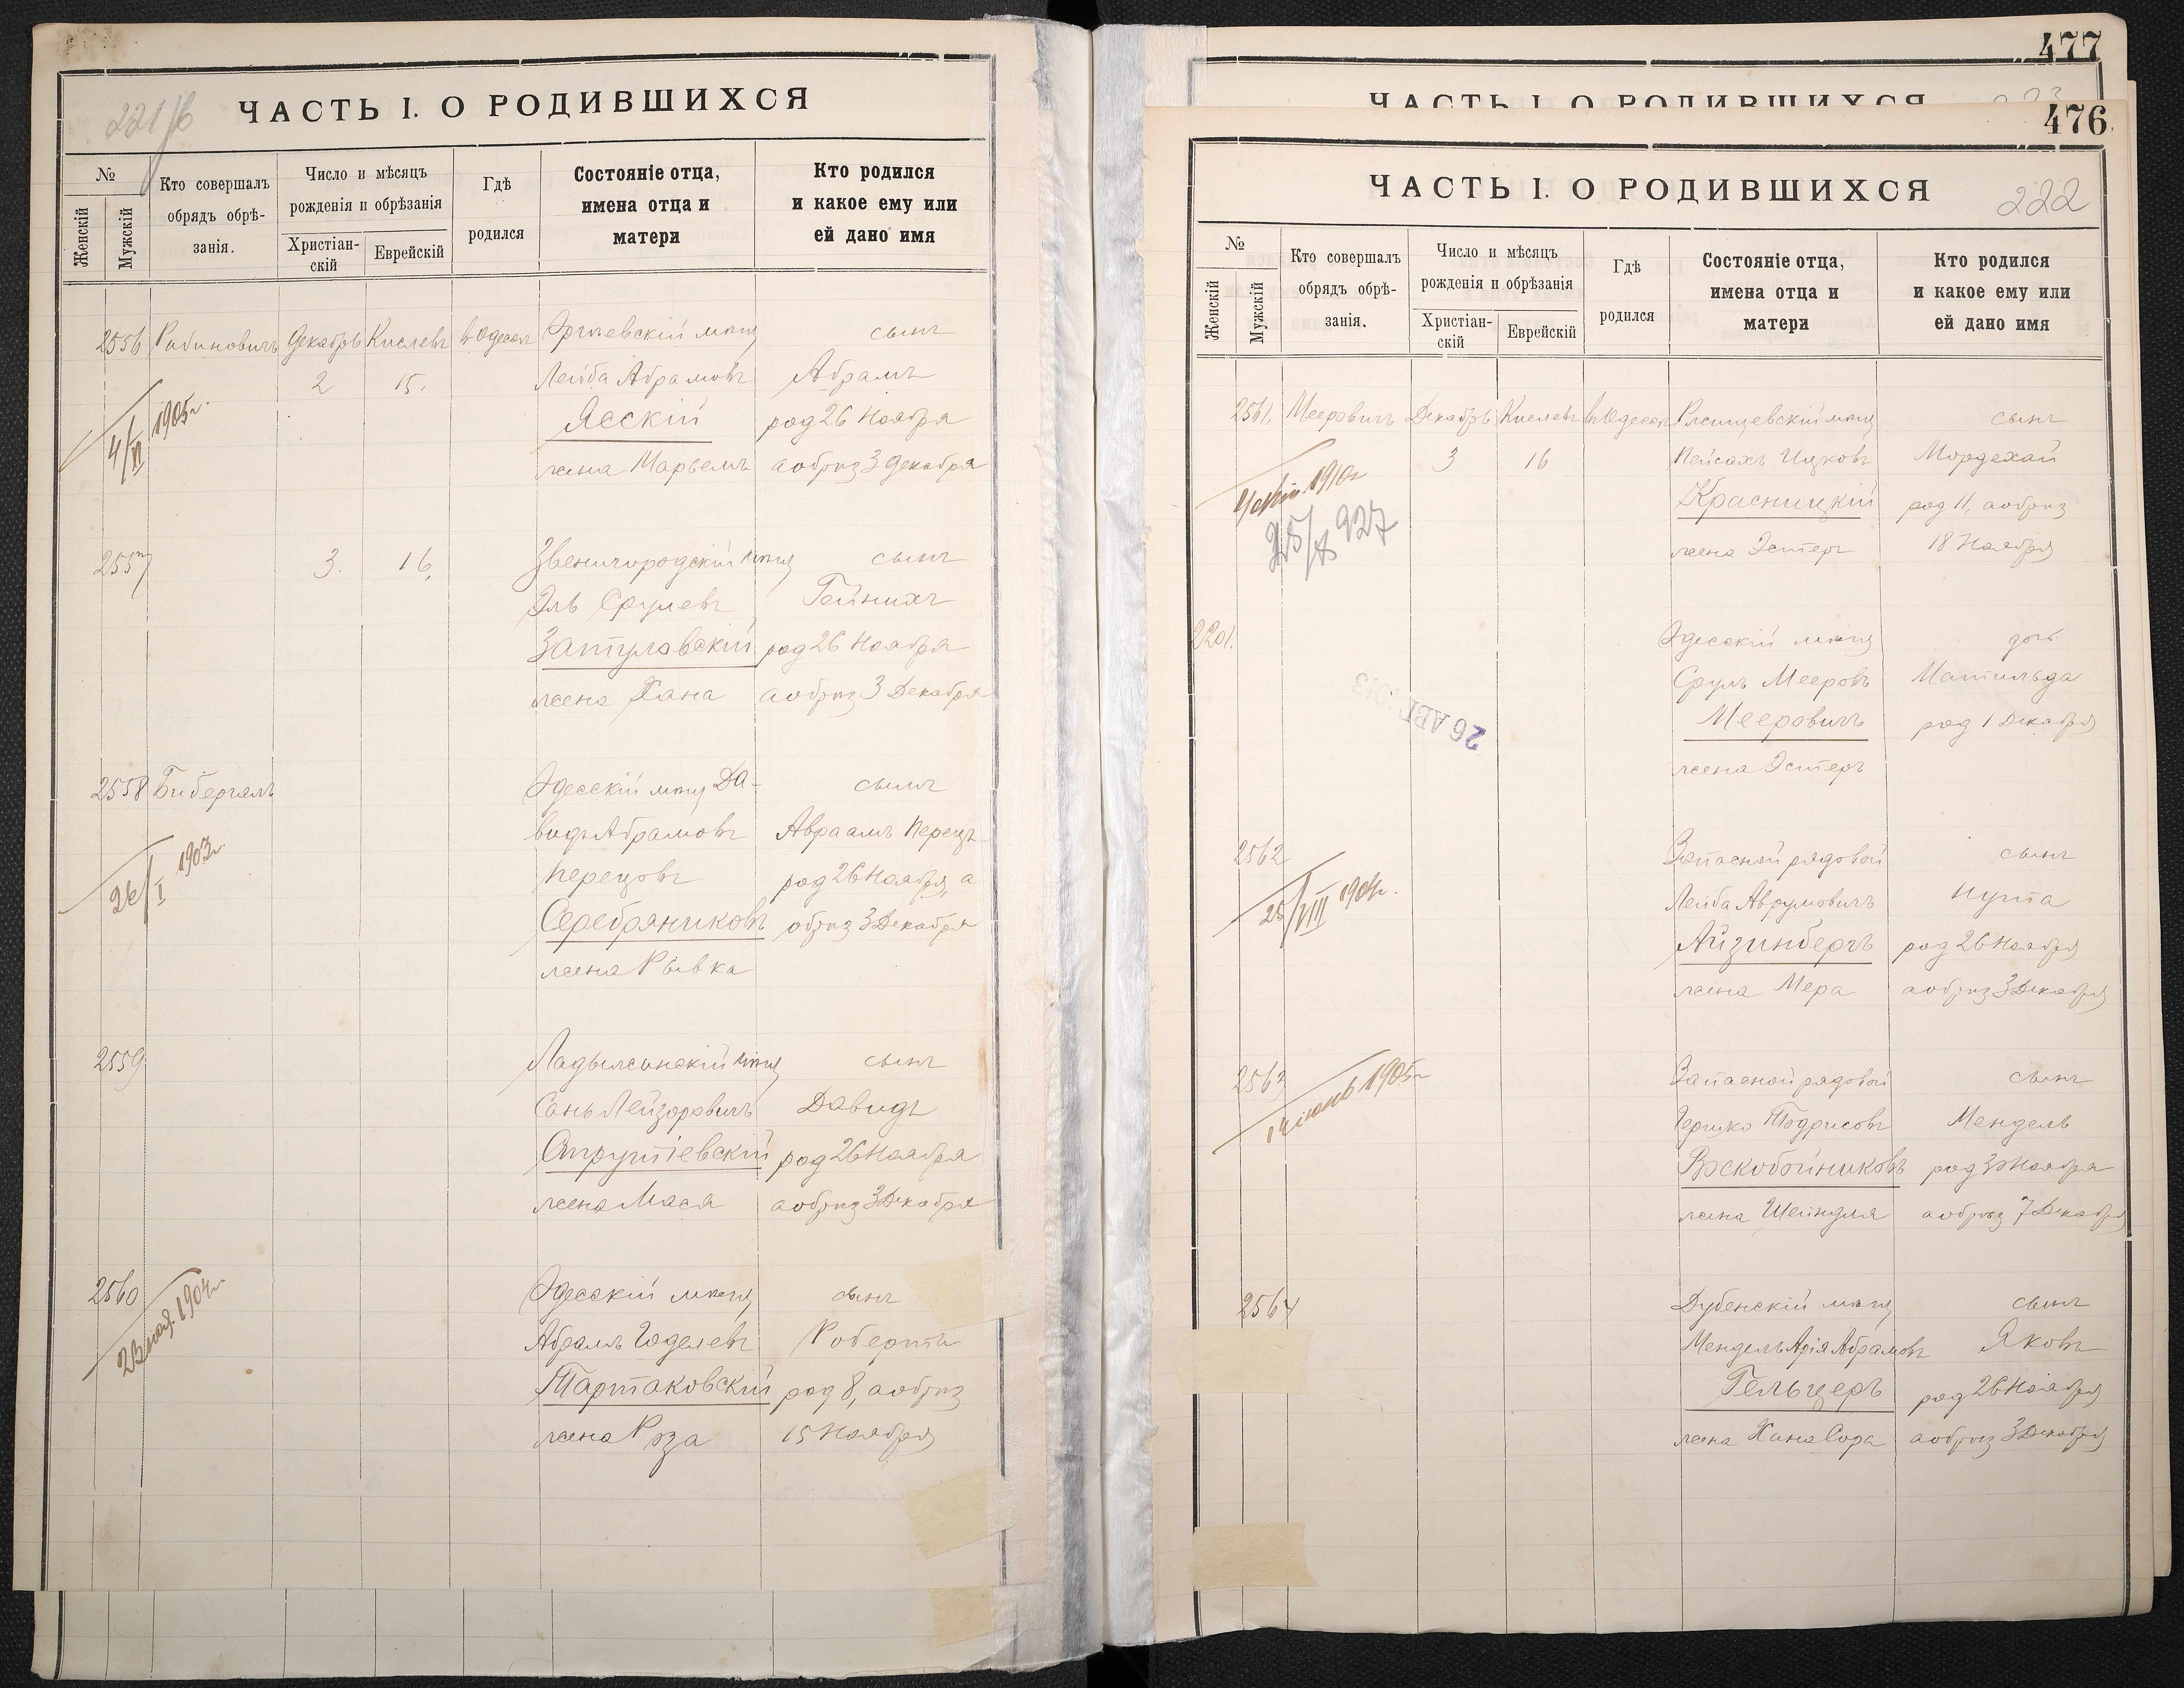 221/б
ЧАСТЬ I. О РОДИВШИХСЯ
№
Женскій
Мужскій
Кто совершалъ
обрядъ обрѣ-
занія.
Число и мѣсяцъ
рожденія и обрѣзанія
Христіан-
скій
Еврейскій
Гдѣ
родился
Состояніе отца,
имена отца и
матери
Кто родился
и какое ему или
ей дано имя
2556 Рабиновичъ Декабрь Кислевъ въ Одессѣ Оргѣевскій мѣщ сынъ
2 15. Лейба Абрамовъ Абрамъ
4/VI 1905г.
Ясскій род 26 Ноября
жена Марьемъ а обрѣз 3 Декабря
2557 3. 16. Звенигородскій мѣщ сынъ
Эль Срулевъ Гейнихъ
Затулавскій род 26 Ноября
жена Хана а обрѣз 3 Декабря
2558 Бибергалъ Одесскій мѣщ Да- сынъ
видъ Абрамовъ Авраамъ Перецъ
26/I 1903г.
Перецовъ род 26 Ноября, а
Серебряниковъ обрѣз 3 Декабря
жена Рывка
2559 Ладыжинскій мѣщ сынъ
Сань Лейзоровичъ Давидъ
род 26 Ноября
жена Мася а обрѣз 3 Декабря
2560 Одесскій мѣщ сынъ
23 мая 1904г.
Абрамъ Юделевъ Робертъ
Тартаковскій род 8, а обрѣз
жена Роза 15 Ноября
477
ЧАСТЬ I. О РОДИВШИХСЯ
223
476
ЧАСТЬ I. О РОДИВШИХСЯ
222
№
Женскій
Мужскій
Кто совершалъ
обрядъ обрѣ-
занія.
Число и мѣсяцъ
рожденія и обрѣзанія
Христіан-
скій
Еврейскій
Гдѣ
родился
Состояніе отца,
имена отца и
матери
Кто родился
и какое ему или
ей дано имя
2561. Мееровичъ Декабрь Кислевъ въ Одессѣ Ржищевскій мѣщ сынъ
3 16 Пейсахъ Ицковъ Мордехай
1910г
Красницкій род 11, а обрѣз
25/X 927
жена Эстеръ 18 Ноября
2201. Одесскій мѣщ дочь
Сруль Мееровъ Матильда
26 АВГ 1913
Мееровичъ род 1 Декабря
жена Эстеръ
2562 Запасной рядовой сынъ
25/VIII 1904г.
Лейба Аврумовичъ Нута
Айзинбергъ род 26 Ноября
жена Мера а обрѣз 3 Декабря
2563 Запасной рядовой сынъ
14 июнь 1905г
Гершко Тодрисовъ Мендель
Воскобойниковъ род 30 Ноября
жена Шейндля а обрѣз 7 Декабря
2564 Дубенскій мѣщ сынъ
Мендель Арія Абрамовъ Яковъ
Гельцеръ род 26 Ноября
жена Хана Сора а обрѣз 3 Декабря